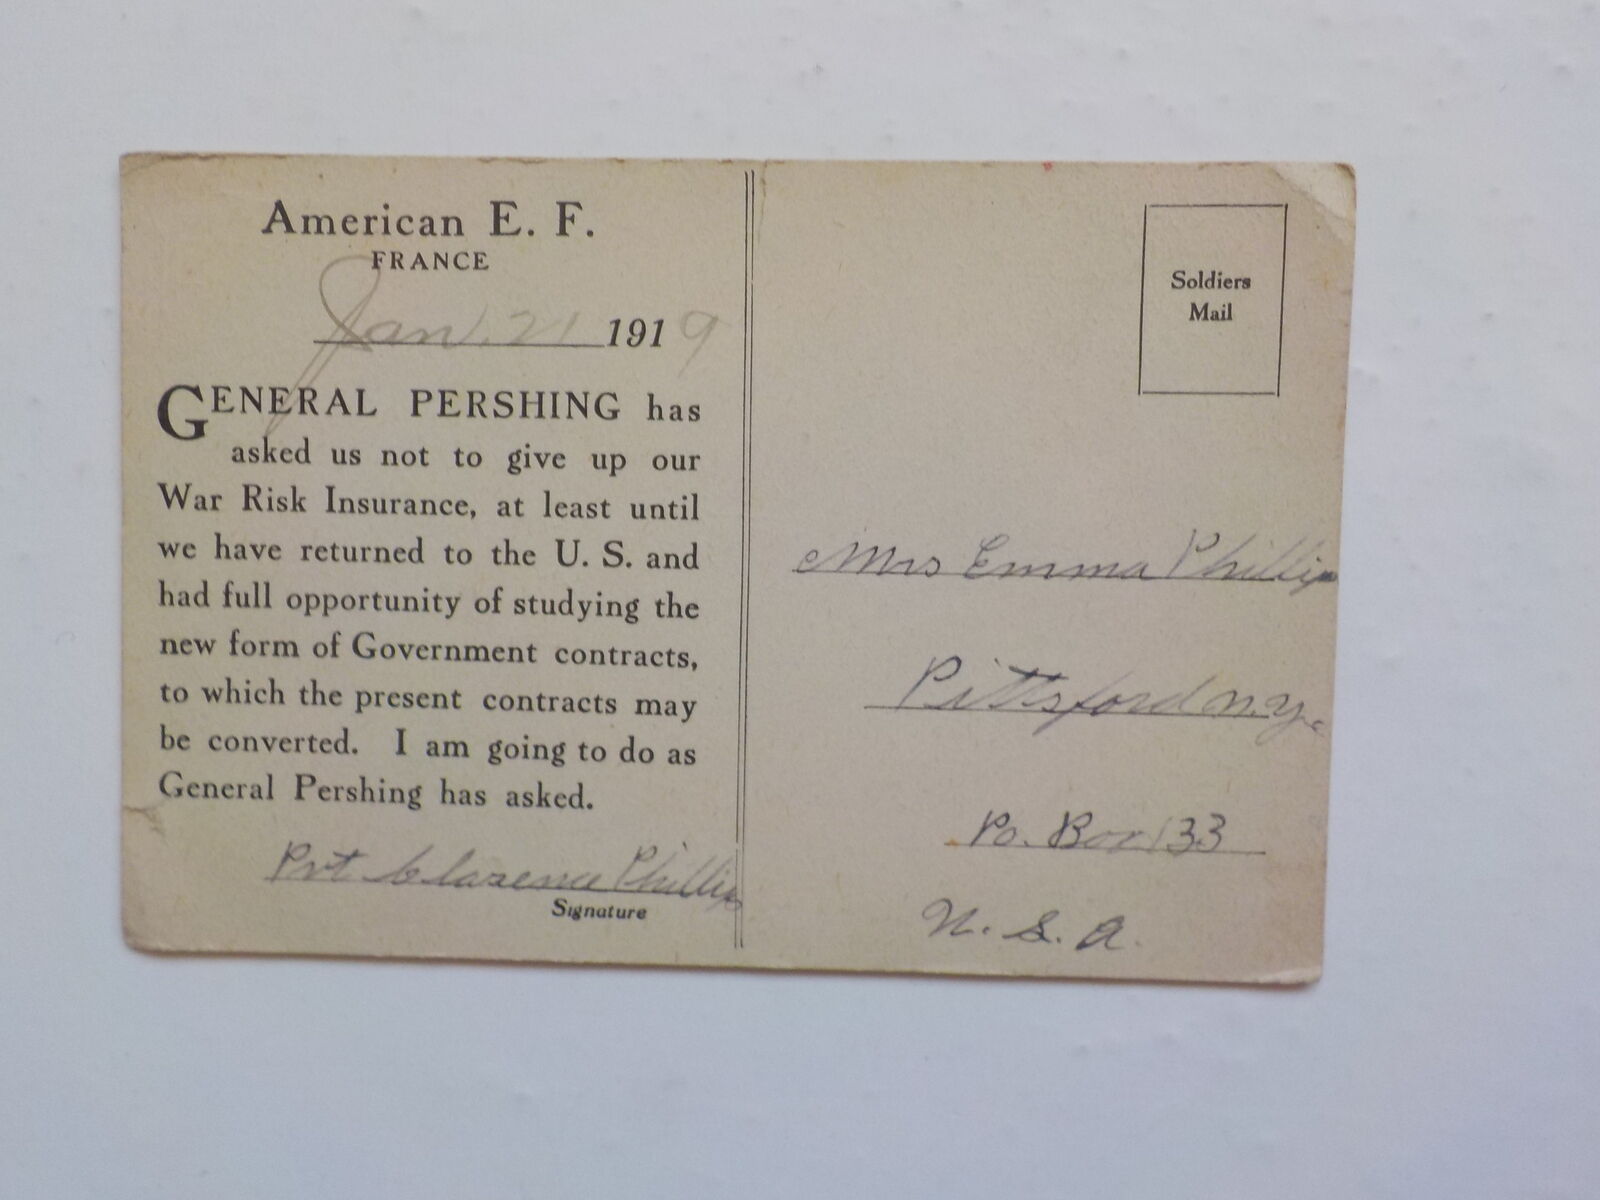 American E. F.
FRANCE
Jan. 21 1919
GENERAL PERSHING has
asked us not to give up our
War Risk Insurance, at least until
we have returned to the U. S. and
had full opportunity of studying the
new form of Government contracts,
to which the present contracts may
be converted. I am going to do as
General Pershing has asked.
Pvt Clarence Phillips
Signature
Soldiers
Mail
Mrs Emma Phillips
Pittsford N.Y.
Po. Box 133
U. S. A.